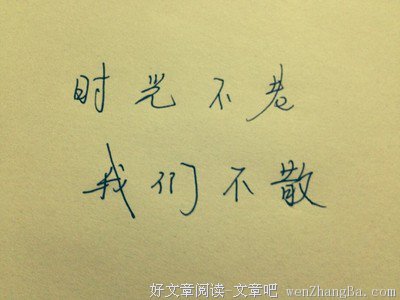 时光不老
我们不散
好文章阅读-文章吧 wenZhangBa.com